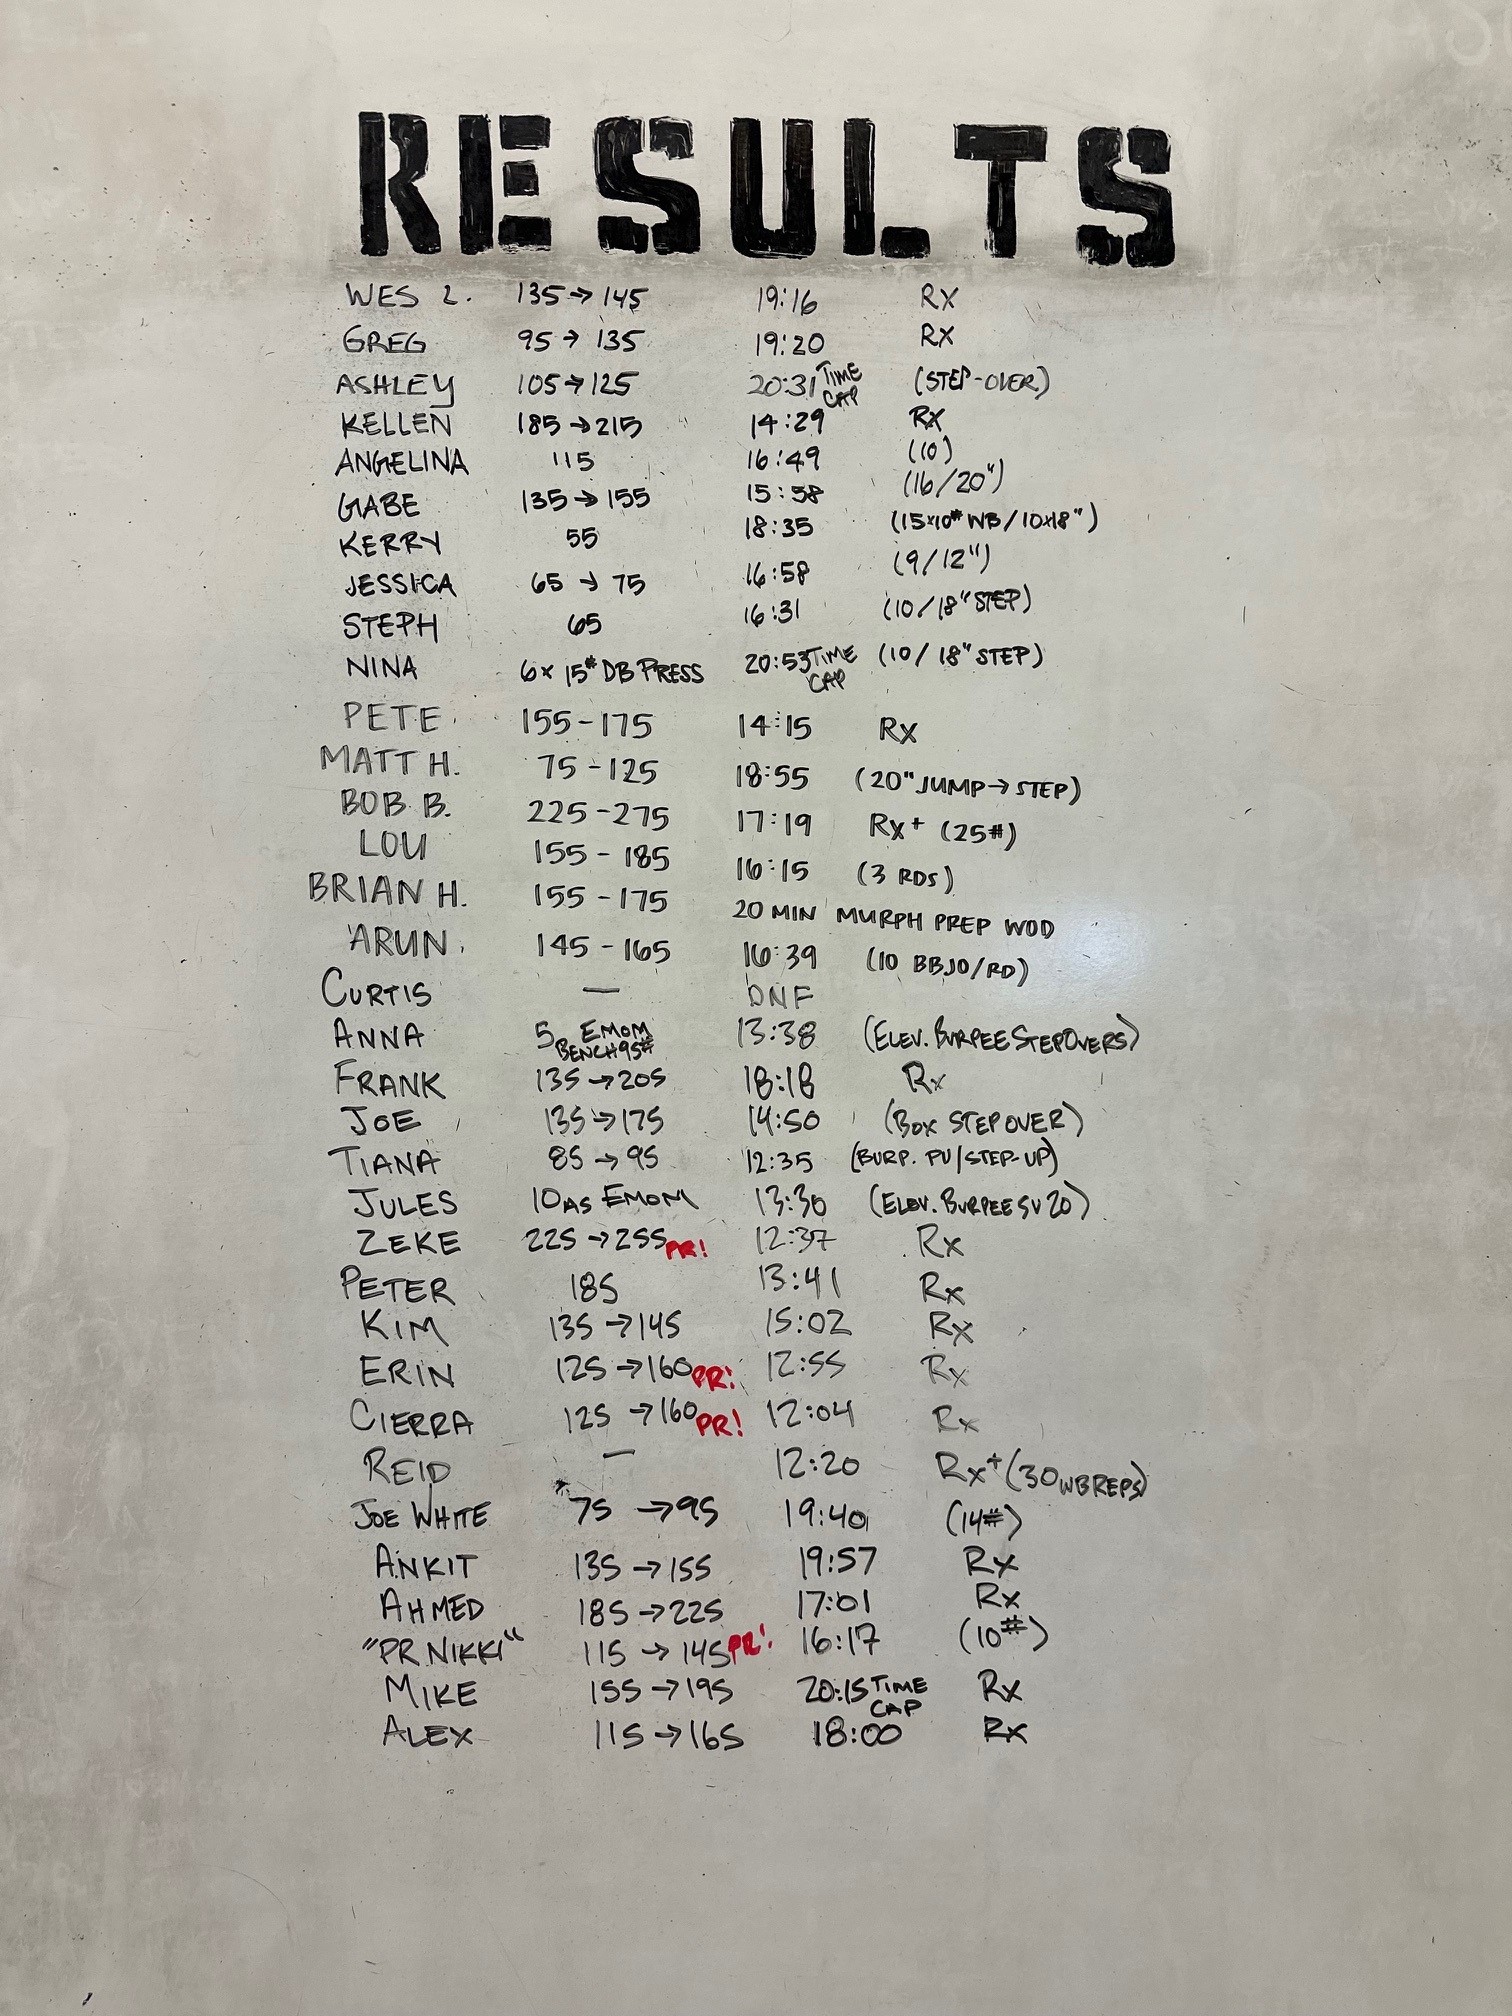 RESULTS
WES 2. 135→145 19:16 RX
GREG 95→135 19:20 RX
ASHLEY 105→125 20:31 TIME CAP (STEP-OVER)
KELLEN 185→215 14:29 RX
ANGELINA 115 16:49 (10)
GABE 135→155 15:58 (16/20")
KERRY 55 18:35 (15x10# WB/10x18")
JESSICA 65→75 16:58 (9/12")
STEPH 65 16:31 (10/18" STEP)
NINA 6x15# DB PRESS 20:53 TIME CAP (10/18" STEP)
PETE 155-175 14:15 RX
MATT H. 75-125 18:55 (20" JUMP→STEP)
BOB B. 225-275 17:19 RX+ (25#)
LOU 155-185 16:15 (3 RDS)
BRIAN H. 155-175 20 MIN MURPH PREP WOD
ARUN 145-165 16:39 (10 BBJO/RD)
CURTIS — DNF
ANNA 5 EMOM BENCH 95# 13:38 (ELEV. BURPEE STEPOVERS)
FRANK 135→205 18:18 Rx
JOE 135→175 14:50 (BOX STEP OVER)
TIANA 85→95 12:35 (BURP. PU/STEP-UP)
JULES 10 AS EMOM 13:30 (ELEV. BURPEE SV 20)
ZEKE 225→255 PR! 12:37 Rx
PETER 185 13:41 Rx
KIM 135→145 15:02 Rx
ERIN 125→160 PR! 12:55 Rx
CIERRA 125→160 PR! 12:04 Rx
REID — 12:20 Rx+ (30 WB REPS)
JOE WHITE 75→95 19:40 (14#)
ANKIT 135→155 19:57 Rx
AHMED 185→225 17:01 Rx
"PR NIKKI" 115→145 PR! 16:17 (10#)
MIKE 155→195 20:15 TIME CAP Rx
ALEX 115→165 18:00 Rx